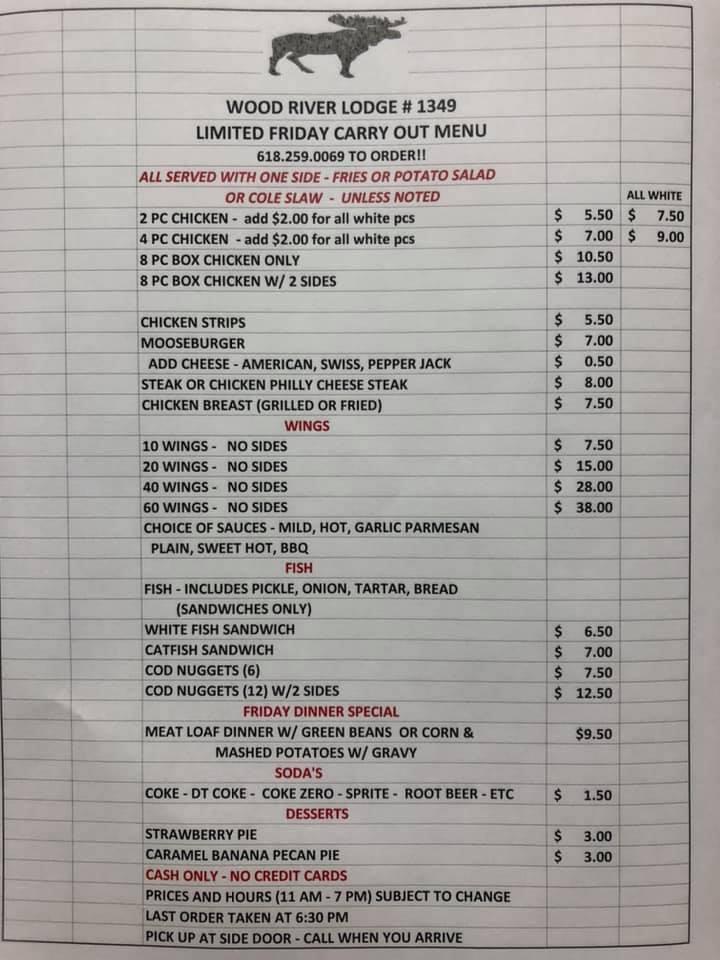 WOOD RIVER LODGE # 1349
LIMITED FRIDAY CARRY OUT MENU
618.259.0069 TO ORDER!!
ALL SERVED WITH ONE SIDE - FRIES OR POTATO SALAD
OR COLE SLAW - UNLESS NOTED ALL WHITE
2 PC CHICKEN - add $2.00 for all white pcs $ 5.50 $ 7.50
4 PC CHICKEN - add $2.00 for all white pcs $ 7.00 $ 9.00
8 PC BOX CHICKEN ONLY $ 10.50
8 PC BOX CHICKEN W/ 2 SIDES $ 13.00
CHICKEN STRIPS $ 5.50
MOOSEBURGER $ 7.00
ADD CHEESE - AMERICAN, SWISS, PEPPER JACK $ 0.50
STEAK OR CHICKEN PHILLY CHEESE STEAK $ 8.00
CHICKEN BREAST (GRILLED OR FRIED) $ 7.50
WINGS
10 WINGS - NO SIDES $ 7.50
20 WINGS - NO SIDES $ 15.00
40 WINGS - NO SIDES $ 28.00
60 WINGS - NO SIDES $ 38.00
CHOICE OF SAUCES - MILD, HOT, GARLIC PARMESAN
PLAIN, SWEET HOT, BBQ
FISH
FISH - INCLUDES PICKLE, ONION, TARTAR, BREAD
(SANDWICHES ONLY)
WHITE FISH SANDWICH $ 6.50
CATFISH SANDWICH $ 7.00
COD NUGGETS (6) $ 7.50
COD NUGGETS (12) W/2 SIDES $ 12.50
FRIDAY DINNER SPECIAL
MEAT LOAF DINNER W/ GREEN BEANS OR CORN & $9.50
MASHED POTATOES W/ GRAVY
SODA'S
COKE - DT COKE - COKE ZERO - SPRITE - ROOT BEER - ETC $ 1.50
DESSERTS
STRAWBERRY PIE $ 3.00
CARAMEL BANANA PECAN PIE $ 3.00
CASH ONLY - NO CREDIT CARDS
PRICES AND HOURS (11 AM - 7 PM) SUBJECT TO CHANGE
LAST ORDER TAKEN AT 6:30 PM
PICK UP AT SIDE DOOR - CALL WHEN YOU ARRIVE